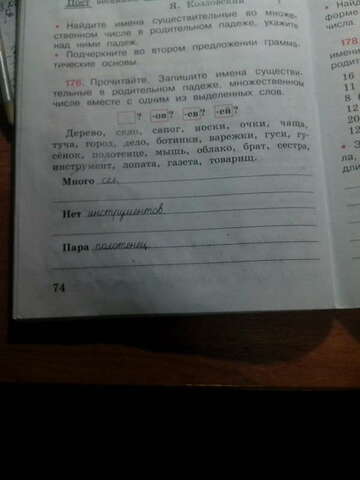 Я. Козловский
• Найдите имена существительные во множе-
ственном числе в родительном падеже, укажите
над ними падеж.
• Подчеркните во втором предложении грамма-
тические основы.
176. Прочитайте. Запишите имена существи-
тельные в родительном падеже, множественном
числе вместе с одним из выделенных слов.
? -ов? -ев? -ей?
Дерево, село, сапог, носки, очки, чаща,
туча, город, дело, ботинки, варежки, гуси, гу-
сёнок, полотенце, мышь, облако, брат, сестра,
инструмент, лопата, газета, товарищ.
Много сел,
Нет инструментов.
Пара полотенец
74
178
имени
роди
16
11
8
12
20